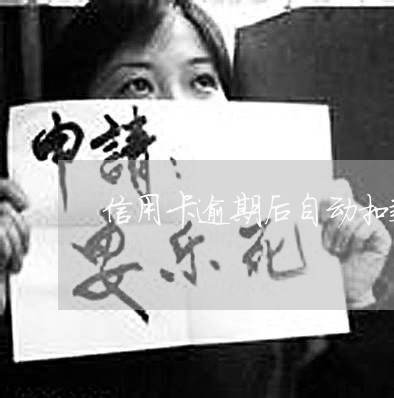 申請：
信用卡逾期后自动扣
安乐死